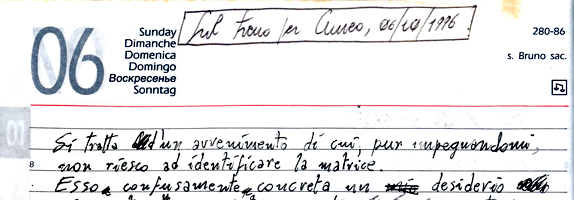 06
Sunday
Dimanche
Domenica
Domingo
Воскресенье
Sonntag
Sul treno per Cuneo, 06/10/1996.
280-86
s. Bruno sac.
01
Si tratta d'un avvenimento di cui, pur impegnandomi,
8 non riesco ad identificare la matrice.
Esso confusamente concreta un desiderio